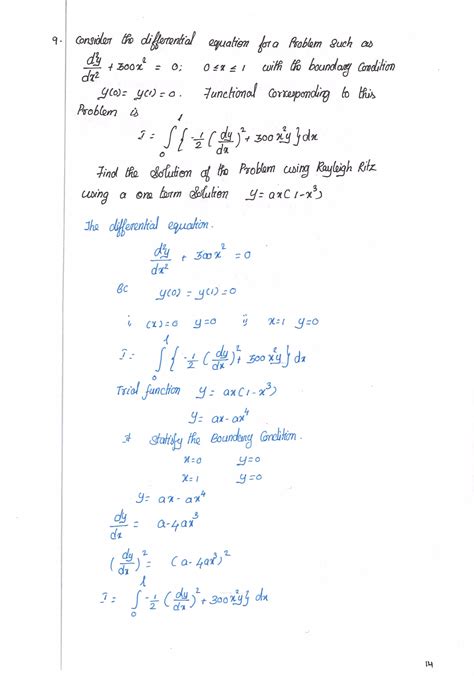 9. consider the differential equation for a Problem such as
d²y/dx² + 300x² = 0; 0≤x≤1 with the boundary Condition
y(0)= y(1)=0. Functional Corresponding to this
Problem is
I= ∫₀^l {-1/2 (dy/dx)² + 300x²y} dx
Find the Solution of the Problem using Rayleigh Ritz
using a one term Solution y= ax(1-x³)
The differential equation.
d²y/dx² + 300x² = 0
BC y(0) = y(1)=0
i (x)=0 y=0 ii x=1 y=0
I= ∫₀^l {-1/2 (dy/dx)² + 300x²y} dx
Trial function y= ax(1-x³)
y= ax-ax⁴
It Statisfy the Boundary Condition.
x=0 y=0
x=1 y=0
y= ax-ax⁴
dy/dx = a-4ax³
(dy/dx)² = (a-4ax³)²
I= ∫₀^l -1/2 (dy/dx)² + 300x²y} dx
14